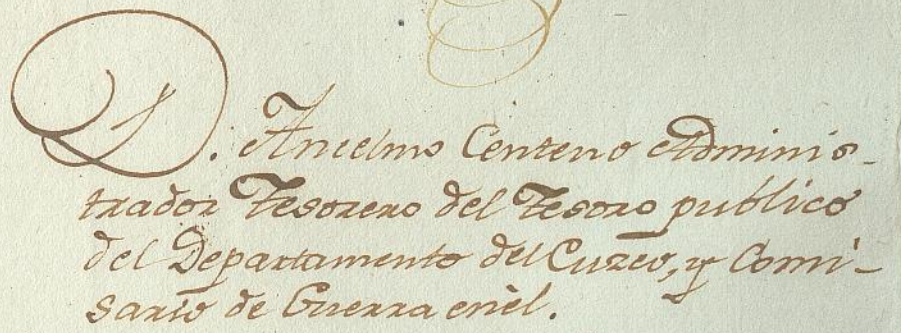 D. Anselmo Centeno Adminis-
trador Tesorero del Tesoro publico
del Departamento del Cuzco, y Comi-
sario de Guerra enèl.